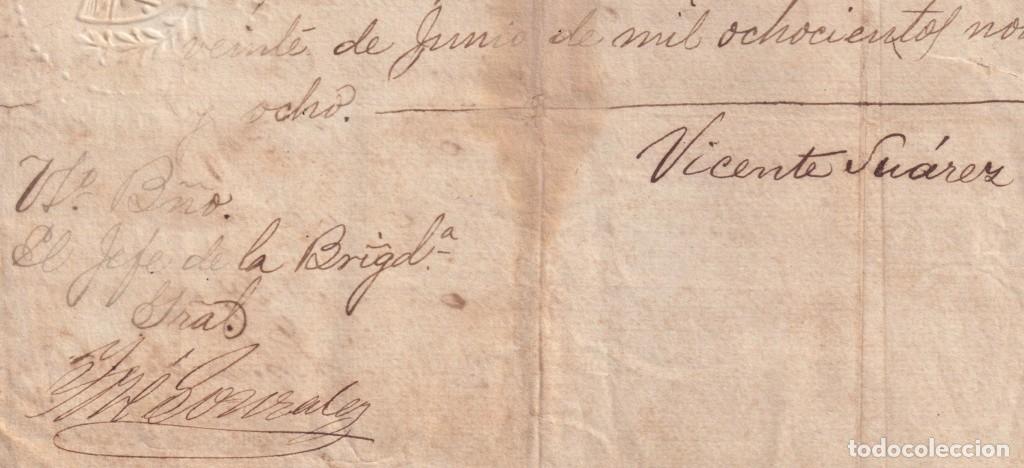 veinte de Junio de mil ochocientos no
y ocho.
Vicente Suárez
Vº. Bño.
El Jefe de la Brigdª
Gral.
González
todocoleccion